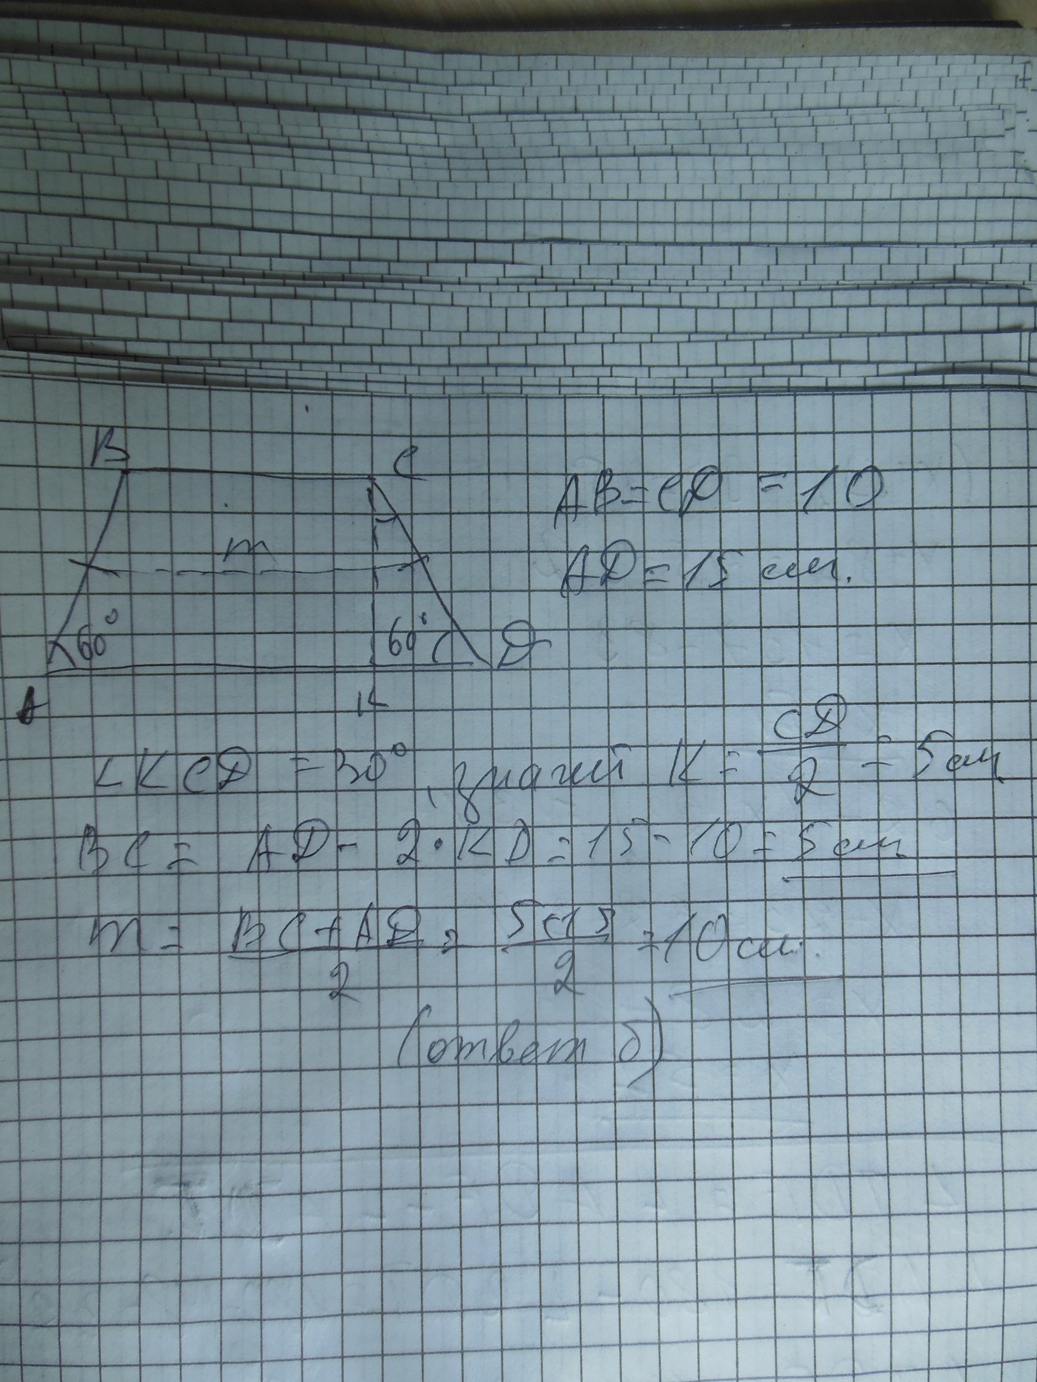 B C
m
60° 60° D
A K
AB=CD = 10
AD=15 см.
∠KCD =30°, K= CD/2 = 5 см
BC= AD- 2·KD=15-10=5см
m= BC+AD/2 = 5+15/2 =10см.
(ответ б)